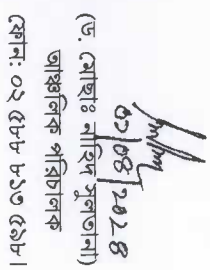 ০১/০৪/২০২৪
(ড. মোছাঃ নাহিদ সুলতানা)
আঞ্চলিক পরিচালক
ফোন: ০২ ৫৮৮ ৮১৩ ৫৯৮।